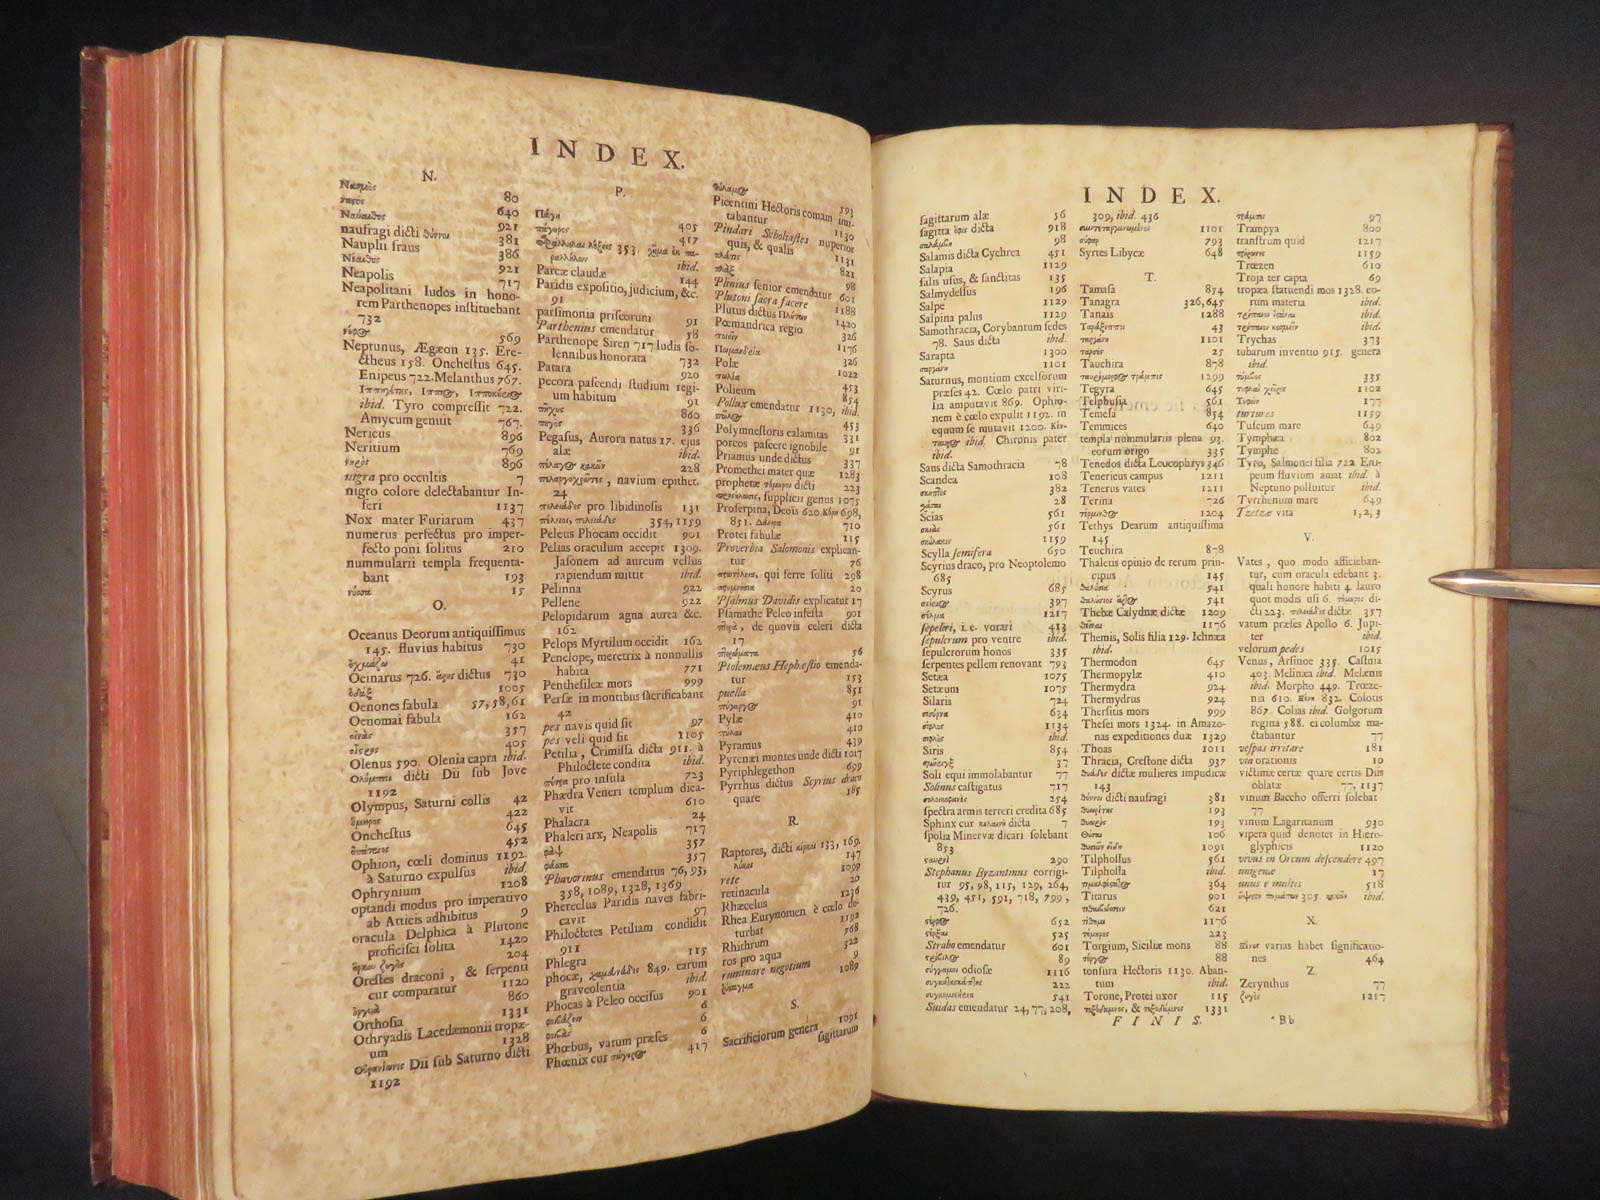 INDEX.
N.
80
640
naufragi dicti 921
Nauplii fraus 381
386
Neapolis 921
Neapolitani ludos in hono- 717
rem Parthenopes instituebant
732
569
Neptunus, Ægæon 135. Ere-
ctheus 158. Onchestus 645.
Enipeus 722. Melanthus 767.
ibid. Tyro compressit 722.
Amycum genuit 767.
Nericus 896
Neritium 769
896
nigra pro occultis 7
nigro colore delectabantur In-
feri 1137
Nox mater Furiarum 437
numerus perfectus pro imper-
fecto poni solitus 210
nummularii templa frequenta-
bant 193
15
O.
Oceanus Deorum antiquissimus
145. fluvius habitus 730
41
Ocinarus 726. dictus 730
1005
Oenones fabula 57, 58, 61
Oenomai fabula 162
357
405
Olenus 590. Olenia capra ibid.
dicti Dii sub Jove
1192
Olympus, Saturni collis 42
422
Onchestus 645
452
Ophion, cœli dominus 1192.
à Saturno expulsus ibid.
Ophrynium 1208
optandi modus pro imperativo
ab Atticis adhibitus 9
oracula Delphica à Plutone
proficisci solita 1420
204
Orestes draconi, & serpenti
cur comparatur 1120
860
Orthosia 1331
Othryadis Lacedæmonii tropæ-
um 1328
Dii sub Saturno dicti
1192
P.
405
417
353.
ibid.
Parcæ claudæ 144
Paridis expositio, judicium, &c.
91
parsimonia priscorum 91
Parthenius emendatur 58
Parthenope Siren 717. ludis so-
lennibus honorata 732
Patara 920
pecora pascendi studium regi-
um habitum 91
860
336
Pegasus, Aurora natus 17. ejus
alæ ibid.
228
, navium epithet.
24
pro libidinosis 131
354, 1159
Peleus Phocam occidit 901
Pelias oraculum accepit 1309.
Jasonem ad aureum vellus
rapiendum mittit ibid.
Pelinna 922
Pellene 922
Pelopidarum agna aurea &c.
162
Pelops Myrtilum occidit 162
Penelope, meretrix à nonnullis
habita 771
Penthesileæ mors 999
Persæ in montibus sacrificabant
42
pes navis quid sit 97
pes veli quid sit 1105
Petilia, Crimissa dicta 911. à
Philoctete condita ibid.
pro insula 723
Phædra Veneri templum dica-
vit 610
Phalacra 24
Phaleri arx, Neapolis 717
357
357
Phavorinus emendatus 76, 93,
358, 1089, 1328, 1369
Phereclus Paridis naves fabri-
cavit 97
Philoctetes Petiliam condidit
911
Phlegra 115
phocæ, 849. earum
graveolentia ibid.
Phocas à Peleo occisus 901
6
6
Phœbus, vatum præses 6
Phœnix cur 417
593
Picentini Hectoris comam imi-
tabantur 1130
Pindari Scholiastes nuperior
quis, & qualis 1131
821
98
Plinius senior emendatur 601
Plutoni sacra facere
Plutus dictus 1188
Pœmandrica regio 1420
326
1176
Polæ 326
1022
Polieum 453
854
Pollux emendatur 1130, ibid.
453
Polymnestoris calamitas 331
porcos pascere ignobile 91
Priamus unde dictus 337
Promethei mater quæ 1283
prophetæ dicti 223
, supplicii genus 1075
Proserpina, Deois 620. 698,
851. 710
Protei fabulæ 115
Proverbia Salomonis explican-
tur 76
, qui ferre soliti 298
20
Psalmus Davidis explicatur 17
Psamathe Peleo infesta 901
, de quovis celeri dicta
17
56
Ptolemæus Hephæstio emenda-
tur 153
puella 851
91
Pylæ 410
410
Pyramus 439
Pyrenæi montes unde dicti 1017
Pyriphlegethon 699
Pyrrhus dictus Scyrius draco
quare 185
R.
Raptores, dicti 133, 169.
147
rete 1099
retinacula 20
Rhæcelus 1236
Rhea Eurynomen è cœlo de-
turbat 1192
Rhithrum 768
ros pro aqua 322
ruminare negotium 9
1089
S.
Sacrificiorum genera 1091
sagittarum
INDEX.
sagittarum alæ 56
sagitta dicta 918
98
Salamis dicta Cychrea 451
Salapia 1129
salis usus, & sanctitas 135
Salmydessus 196
Salpe 1129
Salpina palus 1129
Samothracia, Corybantum sedes
78. Saus dicta ibid.
Sarapta 1300
1101
Saturnus, montium excelsorum
præses 42. Cœlo patri viri-
lia amputavit 869. Ophio-
nem è cœlo expulit 1192. in
equum se mutavit 1200.
ibid. Chironis pater
ibid.
Saus dicta Samothracia 78
Scandea 108
382
28
Scias 561
561
1159
Scylla semifera 650
Scyrius draco, pro Neoptolemo
685
Scyrus 685
397
1217
sepeliri, i.e. vorari 413
sepulcrum pro ventre ibid.
sepulcrorum honos 335
serpentes pellem renovant 793
Setæa 1075
Setæum 1075
Silaris 724
634
1134
ibid.
Siris 854
37
Soli equi immolabantur 77
Solinus castigatus 717
254
spectra armis terreri credita 685
Sphinx cur dicta 7
spolia Minervæ dicari solebant
853
290
Stephanus Byzantinus corrigi-
tur 95, 98, 115, 129, 264,
439, 451, 591, 718, 799,
726.
652
525
Strabo emendatur 601
89
odiosæ 1116
222
541
Suidas emendatur 24, 77, 208,
309, ibid. 436
1101
793
Syrtes Libycæ 648
T.
Tamasa 854
Tanagra 326, 645
Tanais 1288
43
1101
25
Tauchira 878
1299
Tegyra 645
Telphusia 561
Temesa 854
Temmices 640
templa nummulariis plena 93.
eorum origo 335
Tenedos dicta Leucophrys 346
Tenericus campus 1211
Tenerus vates 1211
Terina 726
1204
Tethys Dearum antiquissima
145
Teuchira 878
Thaletis opinio de rerum prin-
cipus 145
541
541
Thebæ Calydnæ dictæ 1209
1176
Themis, Solis filia 129. Ichnæa
ibid.
Thermodon 645
Thermopylæ 410
Thermydra 924
Thermydrus 924
Thersitis mors 999
Thesei mors 1324. in Amazo-
nas expeditiones duæ 1329
Thoas 1011
Thracia, Crestone dicta 937
dictæ mulieres impudicæ
143
dicti naufragi 381
193
193
106
1091
Tilphossus 561
Tilphossa ibid.
364
Titarus 901
621
1176
223
Torgium, Siciliæ mons 88
88
tonsura Hectoris 1130. Aban-
tum ibid.
Torone, Protei uxor 115
1331
97
Trampya 800
transtrum quid 1217
1159
Trœzen 610
Troja ter capta 69
tropæa statuendi mos 1328. eo-
rum materia ibid.
ibid.
ibid.
Trychas 373
tubarum inventio 915. genera
ibid.
335
1102
177
turtures 1159
Tuscum mare 649
Tymphæa 802
Tymphe 802
Tyro, Salmonei filia 722. Eni-
peum fluvium amat ibid. à
Neptuno polluitur ibid.
Tyrrhenum mare 649
Tzetzæ vita 1, 2, 3
V.
Vates, quo modo afficieban-
tur, cum oracula edebant 3.
quali honore habiti 4. lauro
quot modis usi 6. di-
cti 223. dictæ 357
vatum præses Apollo 6. Jupi-
ter ibid.
velorum pedes 1015
Venus, Arsinoe 335. Castnia
403. Melinæa ibid. Melænis
ibid. Morpho 449. Trœze-
nia 610. 832. Colotis
867. Colias ibid. Golgorum
regina 588. ei columbæ ma-
ctabantur 77
vespas irritare 181
via orationis 10
victimæ certæ quare certis Diis
oblatæ 77, 1137
vinum Baccho offerri solebat
77
vinum Lagaritanum 930
vipera quid denotet in Hiero-
glyphicis 1120
vivus in Orcum descendere 497
unigenæ 17
unus e multis 518
305. ibid.
X.
varias habet significatio-
nes 464
Z.
Zerynthus 77
1217
FINIS.
*Bb